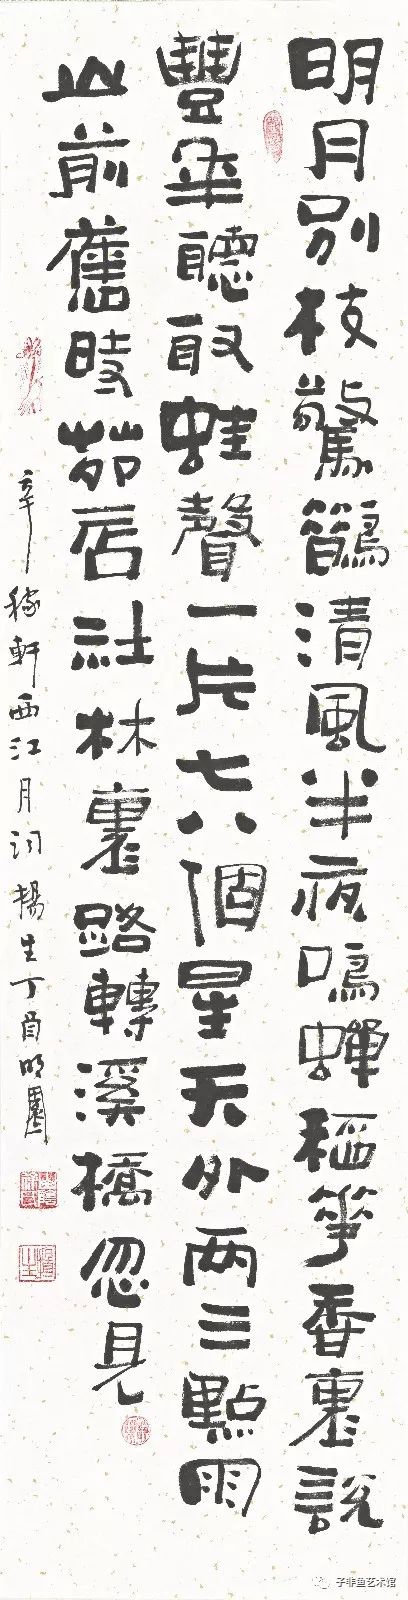 明月别枝驚鵲清風半夜鳴蟬稻華香裏說
豐年聽取蛙聲一片七八個星天外两三點雨
山前舊時茆店社林裏路轉溪橋忽見
辛稼軒西江月詞楊生丁酉明
子非鱼艺术馆